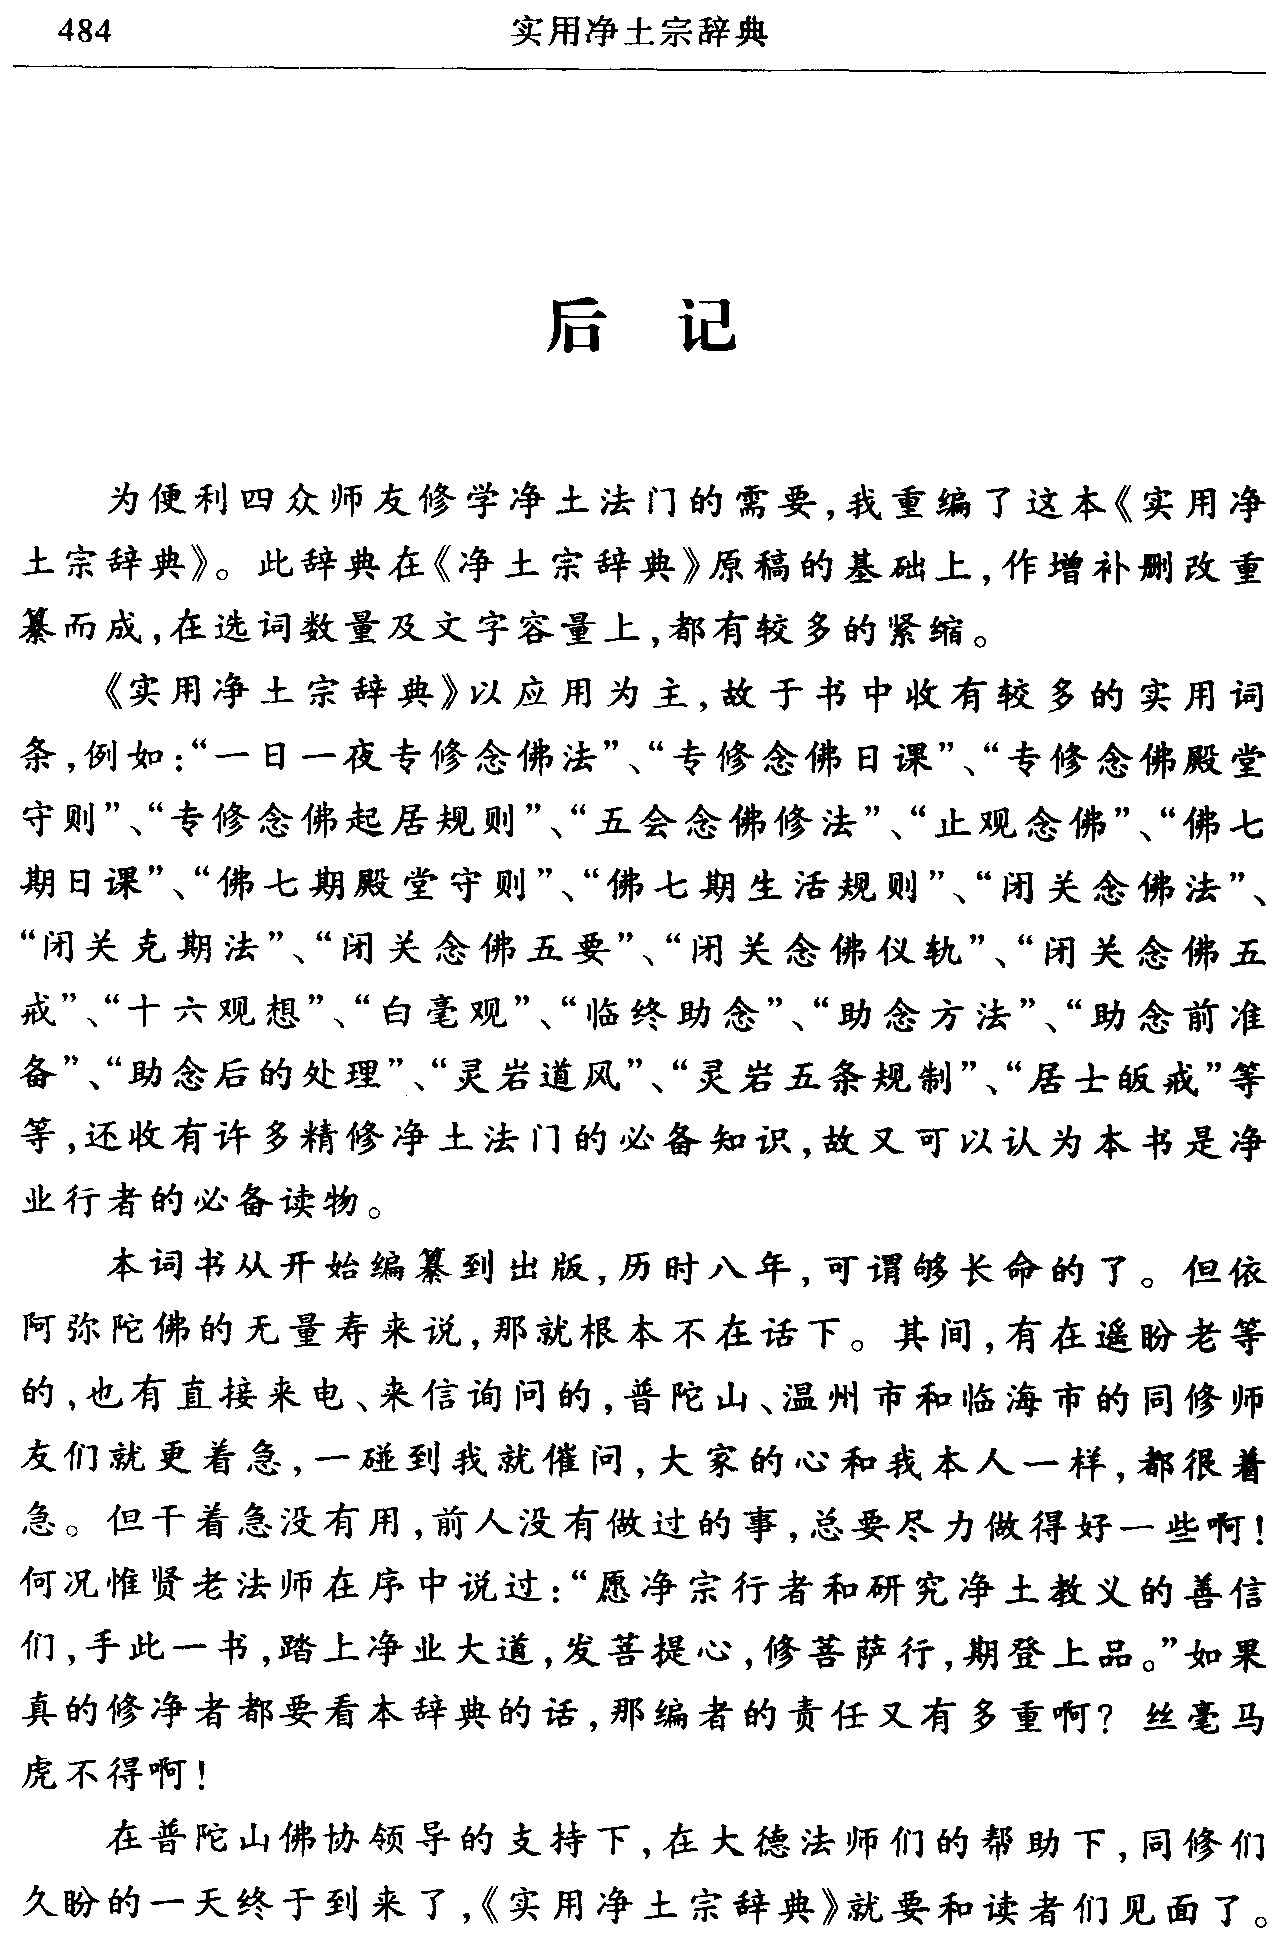 484
实用净土宗辞典
后 记
为便利四众师友修学净土法门的需要，我重编了这本《实用净
土宗辞典》。此辞典在《净土宗辞典》原稿的基础上，作增补删改重
纂而成，在选词数量及文字容量上，都有较多的紧缩。
《实用净土宗辞典》以应用为主，故于书中收有较多的实用词
条，例如：“一日一夜专修念佛法”、“专修念佛日课”、“专修念佛殿堂
守则”、“专修念佛起居规则”、“五会念佛修法”、“止观念佛”、“佛七
期日课”、“佛七期殿堂守则”、“佛七期生活规则”、“闭关念佛法”、
“闭关克期法”、“闭关念佛五要”、“闭关念佛仪轨”、“闭关念佛五
戒”、“十六观想”、“白毫观”、“临终助念”、“助念方法”、“助念前准
备”、“助念后的处理”、“灵岩道风”、“灵岩五条规制”、“居士皈戒”等
等，还收有许多精修净土法门的必备知识，故又可以认为本书是净
业行者的必备读物。
本词书从开始编纂到出版，历时八年，可谓够长命的了。但依
阿弥陀佛的无量寿来说，那就根本不在话下。其间，有在遥盼老等
的，也有直接来电、来信询问的，普陀山、温州市和临海市的同修师
友们就更着急，一碰到我就催问，大家的心和我本人一样，都很着
急。但干着急没有用，前人没有做过的事，总要尽力做得好一些啊！
何况惟贤老法师在序中说过：“愿净宗行者和研究净土教义的善信
们，手此一书，踏上净业大道，发菩提心，修菩萨行，期登上品。”如果
真的修净者都要看本辞典的话，那编者的责任又有多重啊？丝毫马
虎不得啊！
在普陀山佛协领导的支持下，在大德法师们的帮助下，同修们
久盼的一天终于到来了，《实用净土宗辞典》就要和读者们见面了。